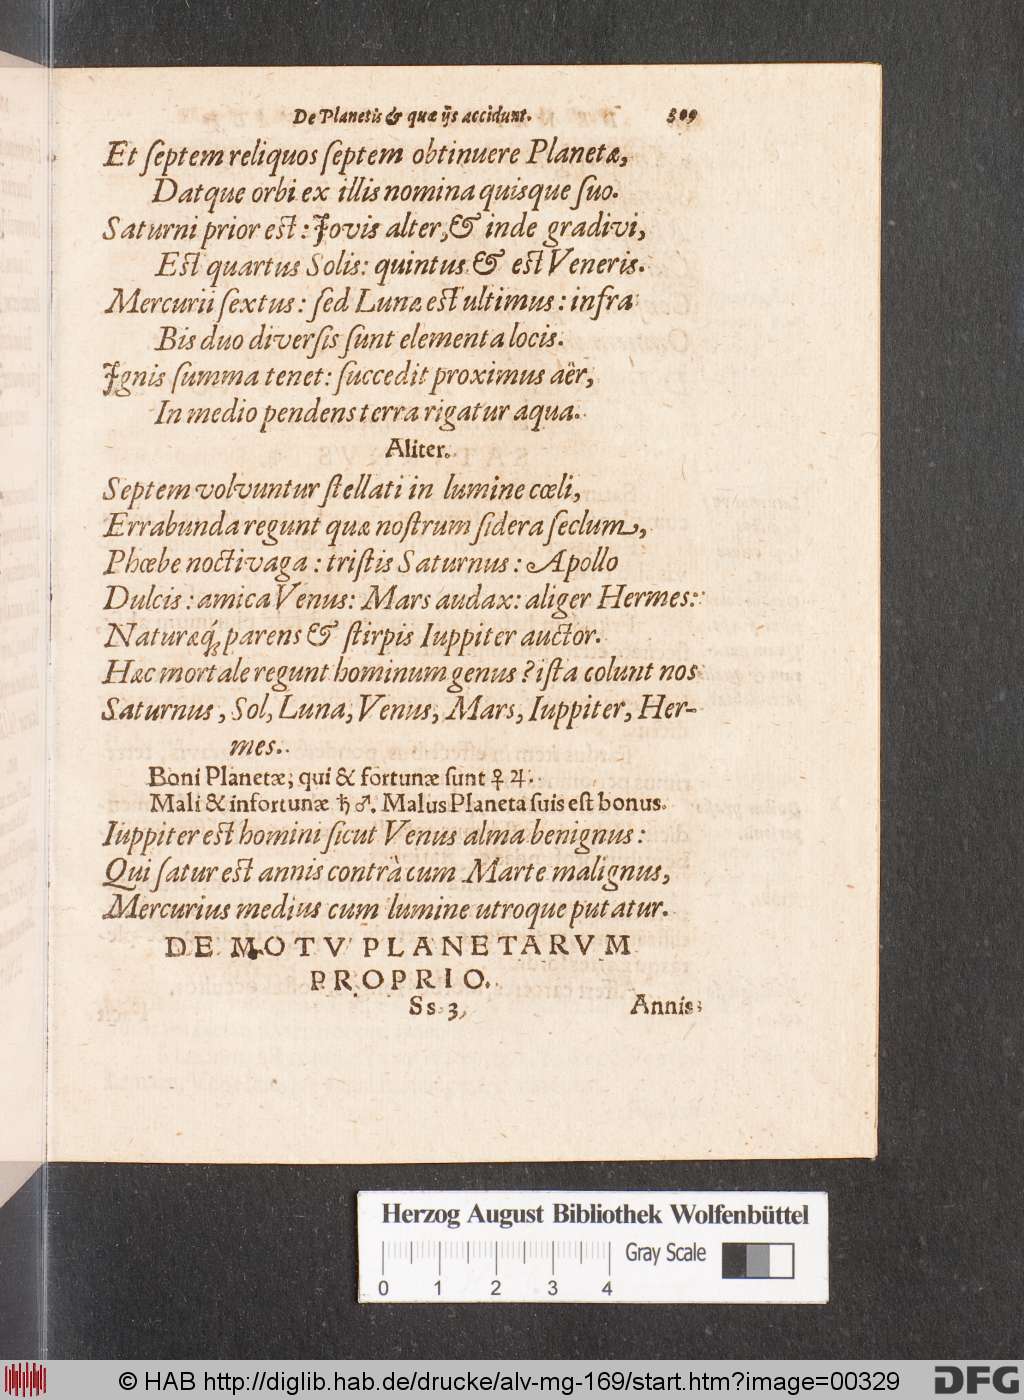 De Planetis & quæ ijs accidunt. 309
Et ſeptem reliquos ſeptem obtinuere Planetæ,
Datque orbi ex illis nomina quisque ſuo.
Saturni prior est: Jovis alter, & inde gradivi,
Est quartus Solis: quintus & est Veneris.
Mercurii ſextus: ſed Lunæ est ultimus: infra
Bis duo diverſis ſunt elementa locis.
Jgnis ſumma tenet: ſuccedit proximus aër,
In medio pendens terra rigatur aqua.
Aliter.
Septem volvuntur ſtellati in lumine cœli,
Errabunda regunt quæ noſtrum ſidera ſeclum,
Phœbe noctivaga: triſtis Saturnus: Apollo
Dulcis: amica Venus: Mars audax: aliger Hermes:
Naturæq́; parens & ſtirpis Iuppiter auctor.
Hæc mortale regunt hominum genus? iſta colunt nos
Saturnus, Sol, Luna, Venus, Mars, Iuppiter, Her-
mes.
Boni Planetæ, qui & fortunæ ſunt ♀ ♃.
Mali & infortunæ ♄ ♂. Malus Planeta ſuis eſt bonus.
Iuppiter est homini ſicut Venus alma benignus:
Qui ſatur est annis contrà cum Marte malignus,
Mercurius medius cum lumine utroque putatur.
DE MOTV PLANETARVM
PROPRIO.
Ss 3 Annis
Herzog August Bibliothek Wolfenbüttel
Gray Scale
0 1 2 3 4
© HAB http://diglib.hab.de/drucke/alv-mg-169/start.htm?image=00329
DFG